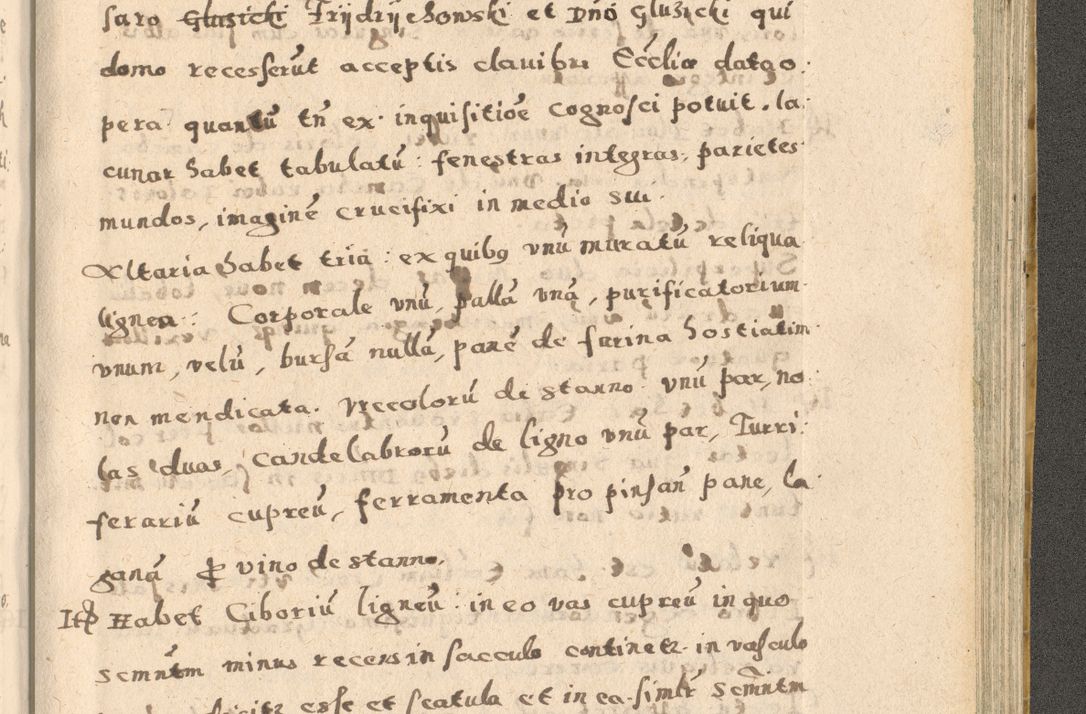 saro Glusicki Frijdrijchowski et Dnō Glużicki qui
domo recesserūt acceptis clauibus Ecclīœ datgo.
pera quantū tn̄ ex inquisitiōe cognosci potuit. la
cunar habet tabulatū: fenestras integras, parietes
mundos, imaginē crucifixi in medio sui.
Altaria habet tria: ex quibus vnū muratū reliqua
lignea: Corporale vnū, pallā vnā, purificatorium
vnum, velū, bursā nullā, panē de farina hostiatim
non mendicata. Vrceolorū de stanno vnū par, no
las duas, candelabrorū de ligno vnū par, Turri
ferariū cupreū, ferramenta pro pinsan̄ pane, la
ganā p̄ vino de stanno.
Itē Habet Ciborīū ligneū: in eo vas cupreū in quo
scmn̄tm minus recens in sacculo continetr in vasculo
esse et scatula et in ea similr̄ Scm̄ntm